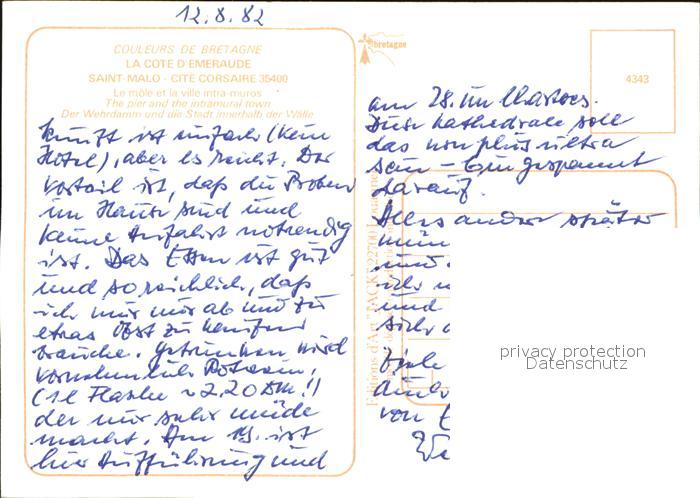 12.8.82
COULEURS DE BRETAGNE
LA COTE D'EMERAUDE
SAINT-MALO - CITE CORSAIRE 35400
Le môle et la ville intra-muros
The pier and the intramural town
Der Wehrdamm und die Stadt innerhalb der Wälle
kunft ist einfach (kein
Hotel), aber es reicht. Der
Vorteil ist, daß die Proben
im Hause sind und
keine Anfahrt notwendig
ist. Das Essen ist gut
und so reichlich, daß
ich mir nur ab und zu
etwas Obst zu kaufen
brauche. Getrunken wird
vornehmlich Rotwein,
(1 l Flasche ~ 2,20 DM!)
der nur sehr müde
macht. Am 19. ist
hier Aufführung und
bretagne
4343
am 28. in Chartres.
Diese Kathedrale soll
das non plus ultra
sein - bin gespannt
darauf.
Alles andere später
mün
und
ich
und
sich
Viele
von
privacy protection
Datenschutz
Editions d'Art JACK